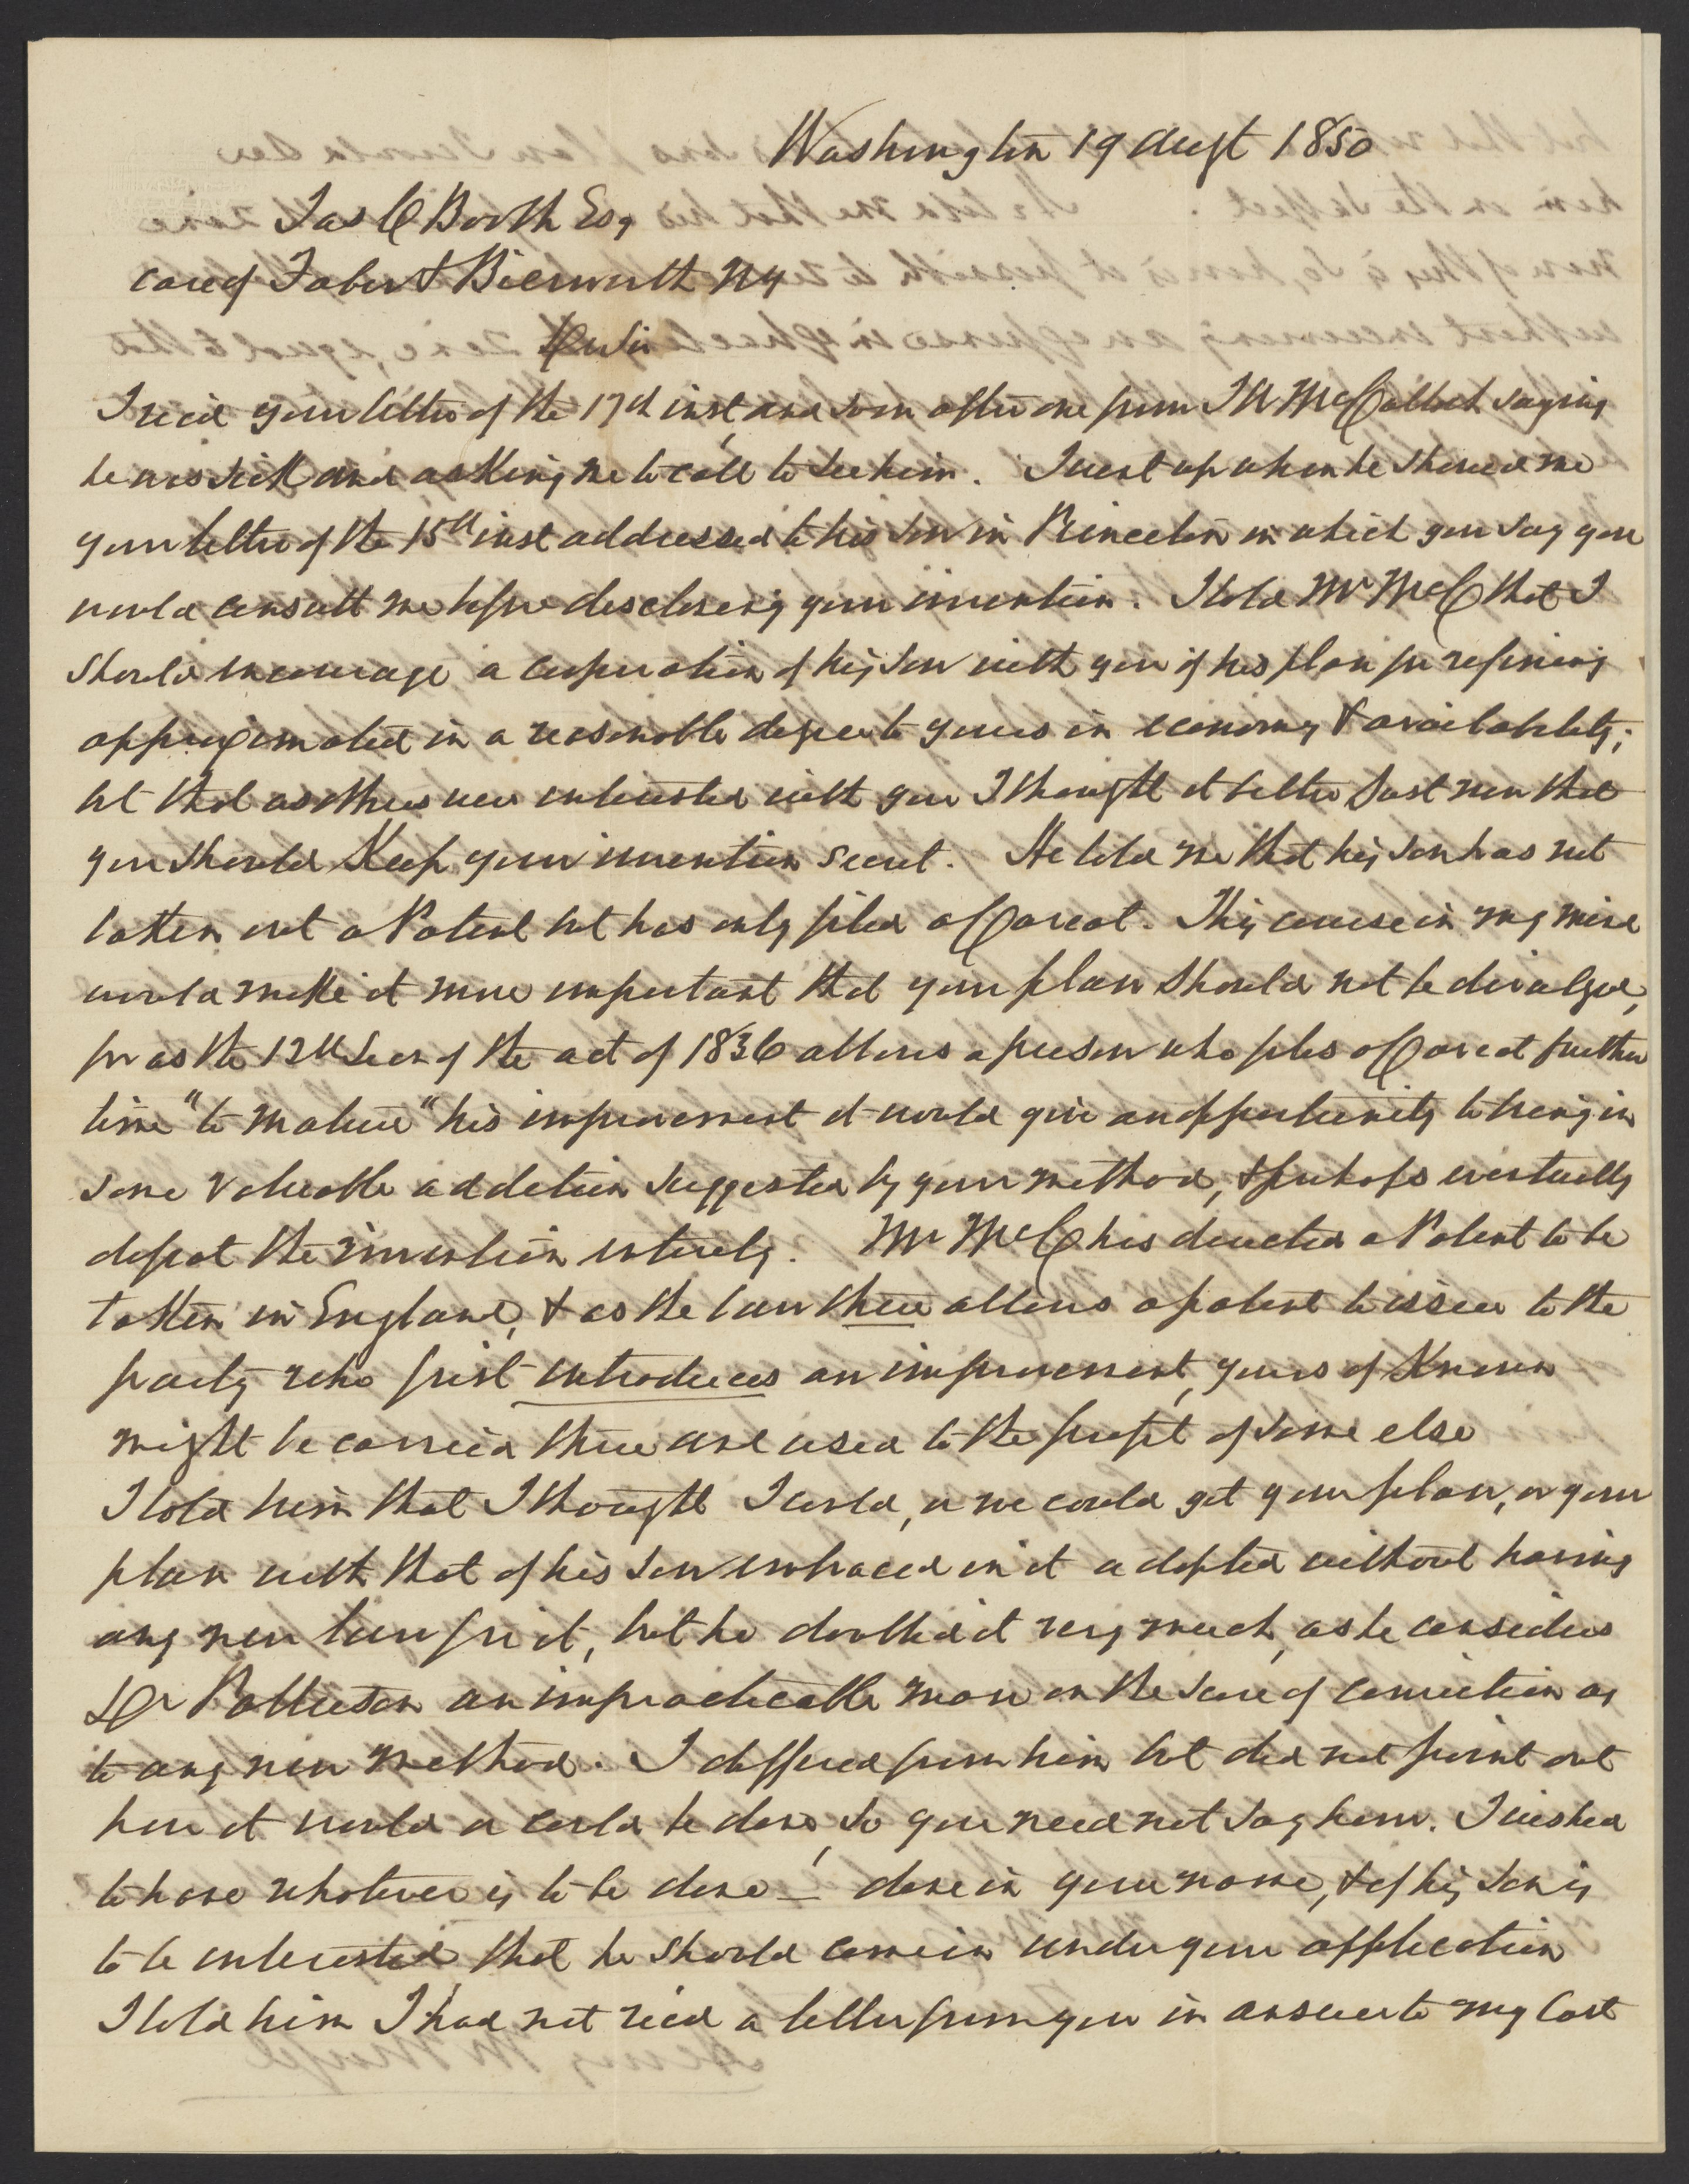 Washington 19 Augt 1850
Jas C Booth Esq
care of Faber & Bierwirth NY
Dr Sir
I recd your letter of the 17th inst, and soon after one from J W McCulloch saying
he was sick and asking me to call to see him. I went up when he showed me
your letter of the 15th inst addressed to his son in Princeton in which you say you
would consult me before disclosing your invention. I told Mr McC that I
should encourage a cooperation of his son with you if his plan for refining
approximated in a reasonable degree to yours in economy & availability;
but that as others were interested with you I thought it better just now that
you should Keep your invention secret. He told me that his son has not
taken out a Patent but has only filed a Caveat. This course in my mind
would make it more important that your plan should not be divulged,
for as the 12th Secn of the act of 1836 allows a person who files a Caveat further
time "to mature" his improvement it would give an opportunity to bring in
some valuable addition suggested by your method, & perhaps eventually
defeat the invention entirely. Mr McC has directed a Patent to be
taken in England, & as the law there allows a patent to issue to the
party who first introduces an improvement, yours if Known
might be carried there and used to the profit of some else
I told him that I thought I could, or we could get your plan, or your
plan with that of his son embraced in it adopted without having
any new law for it, but he doubted it very much, as he considers
Dr Patterson an impracticable man on the score of conviction as
to any new method. I differed from him but did not point out
how it would or could be done, so you need not say how. I wished
to have whatever is to be done – done in your name, & if his son is
to be interested, that he should come in under your application
I told him I had not recd a letter from you in answer to my last